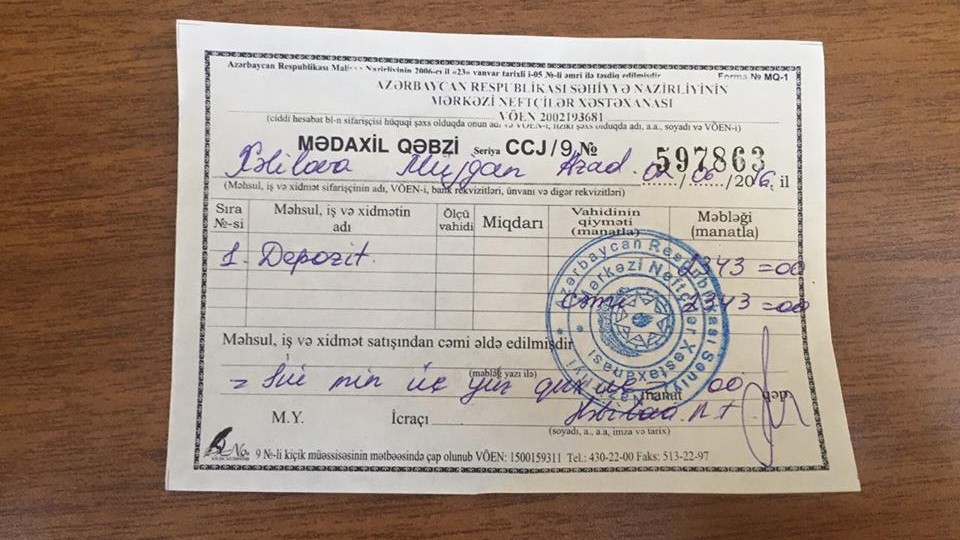 Azərbaycan Respublikası Maliyyə Nazirliyinin 2006-cı il «23» yanvar tarixli i-05 №-li əmri ilə təsdiq edilmişdir Forma № MQ-1
AZƏRBAYCAN RESPUBLİKASI SƏHİYYƏ NAZİRLİYİNİN
MƏRKƏZİ NEFTÇİLƏR XƏSTƏXANASI
VÖEN 2002193681
(ciddi hesabat bl-n sifarişçisi hüquqi şəxs olduqda onun adı və VÖEN-i, fiziki şəxs olduqda adı, a.a., soyadı və VÖEN-i)
MƏDAXİL QƏBZİ Seriya CCJ/9 № 597863
Xəlilova Müjgan Azad. 02/06/2016 il
(Məhsul, iş və xidmət sifarişçinin adı, VÖEN-i, bank rekvizitləri, ünvanı və digər rekvizitləri)
Sıra №-si Məhsul, iş və xidmətin adı Ölçü vahidi Miqdarı Vahidinin qiyməti (manatla) Məbləği (manatla)
1. Depozit. 2343=00
Cəmi 2343=00
Məhsul, iş və xidmət satışından cəmi əldə edilmişdir
= iki min üç yüz qırx üç = manat 00 qəp.
(məbləğ yazı ilə)
M.Y. İcraçı
(soyadı, a., a.a, imza və tarix)
9 №-li kiçik müəssisəsinin mətbəəsində çap olunub VÖEN: 1500159311 Tel.: 430-22-00 Faks: 513-22-97
Azərbaycan Respublikası Səhiyyə Nazirliyi
Mərkəzi Neftçilər Xəstəxanası